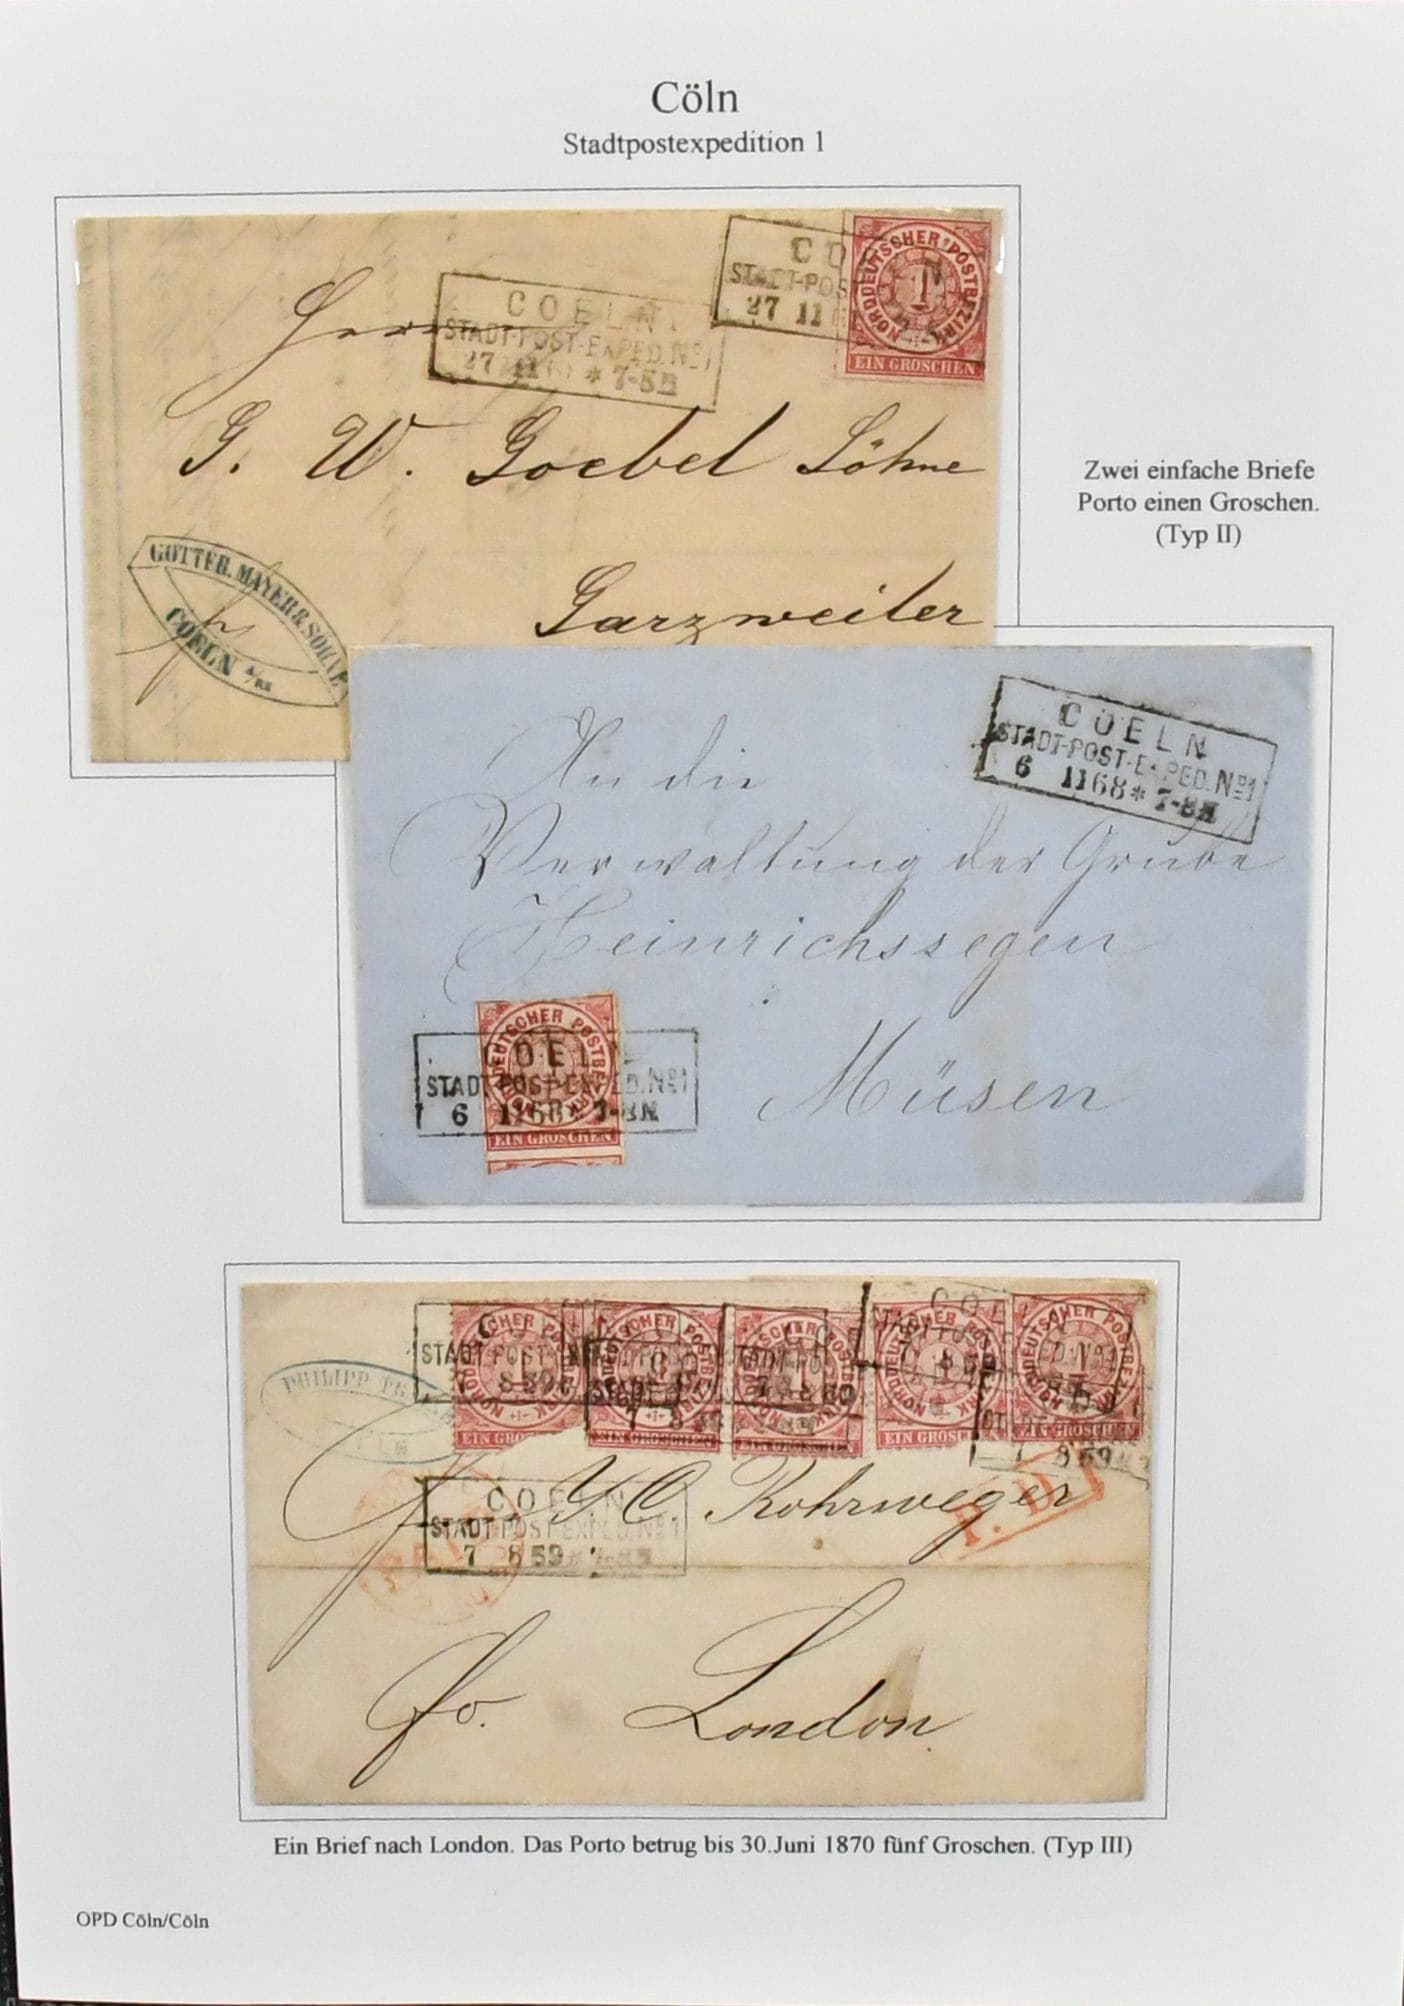 Cöln
Stadtpostexpedition 1
COELN
STADT-POST-EXPED. No 1
27 11 * 7-8N
27 11
NORDDEUTSCHER POSTBEZIRK
1
EIN GROSCHEN
Herrn
G. W. Goebel Söhne
Garzweiler
GOTTFR. MAYER & SÖHNE
COELN
Zwei einfache Briefe
Porto einen Groschen.
(Typ II)
COELN
STADT-POST-EXPED. No 1
6 11 68 * 7-8N
An die
Verwaltung der Grube
Heinrichssegen
Müsen
NORDDEUTSCHER POSTBEZIRK
EIN GROSCHEN
STADT-POST-EXPED. No 1
6 11 68 * 7-8N
NORDDEUTSCHER POSTBEZIRK
EIN GROSCHEN
EIN GROSCHEN
EIN GROSCHEN
EIN GROSCHEN
EIN GROSCHEN
PHILIPP
COELN
STADT-POST-EXPED. No 1
7 8 69
Rohrweger
P.D.
PAID
London
Ein Brief nach London. Das Porto betrug bis 30.Juni 1870 fünf Groschen. (Typ III)
OPD Cöln/Cöln